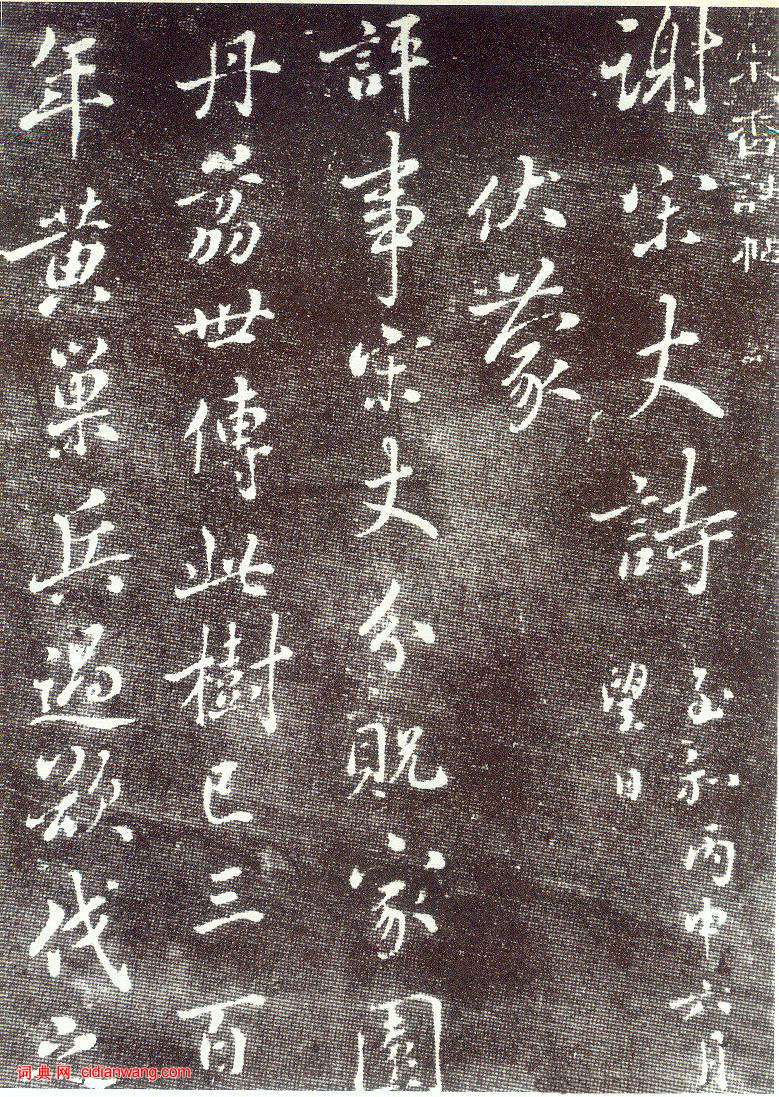 謝宋丈詩 至和丙申六月
望日
伏蒙
評事宋丈分貺家園
丹荔世傳此樹已三百
年黄巢兵過欲伐之
词典网 cidianwang.com